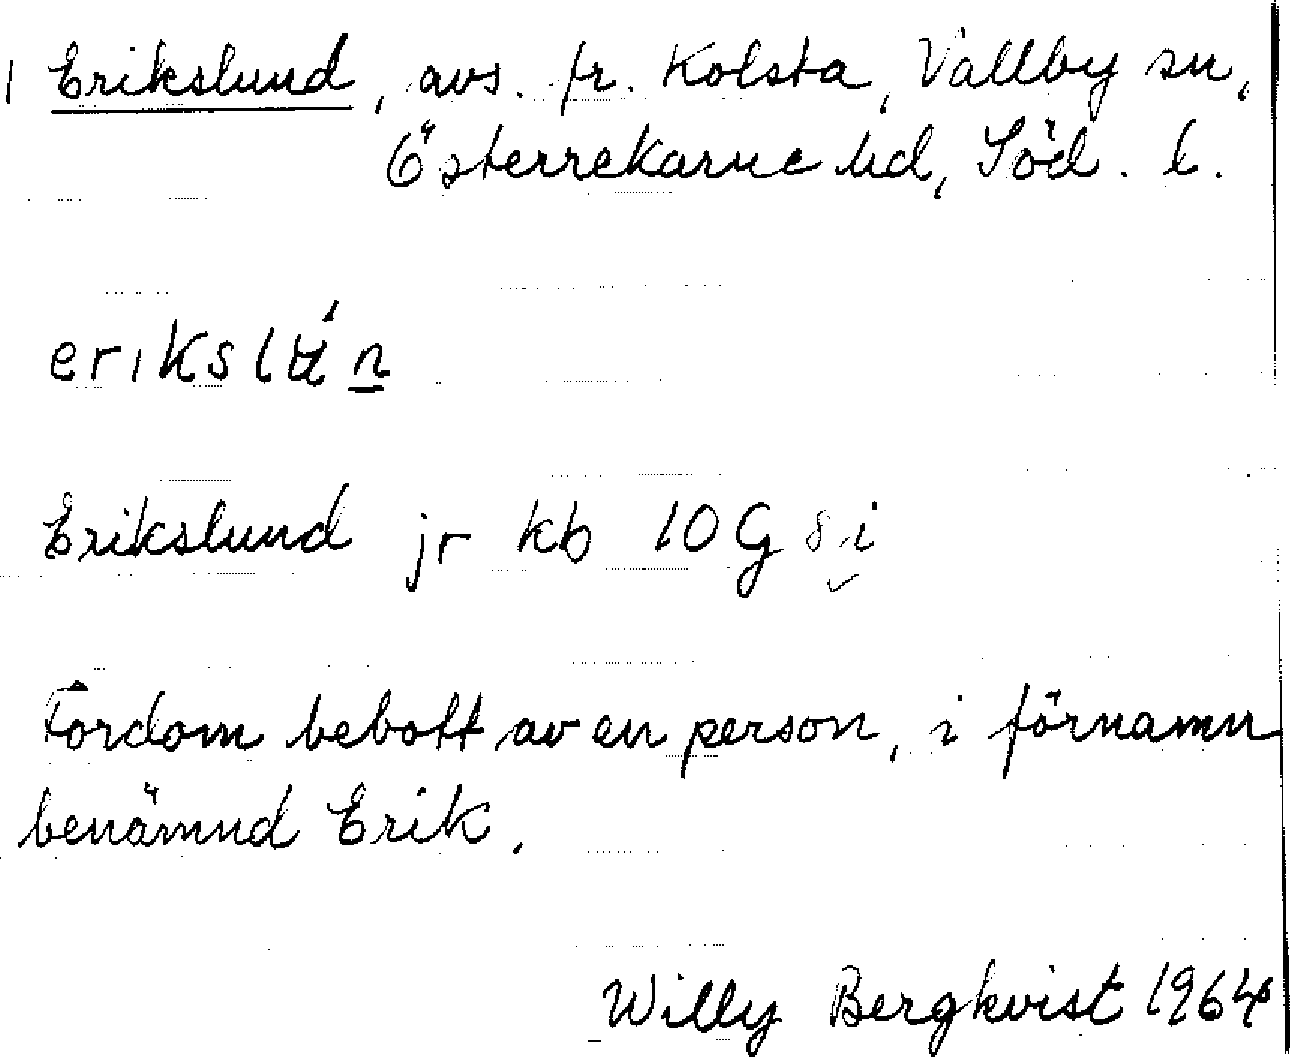 1 Erikslund, avs. fr. Kolsta, Vallby sn,
Österrekarne hd, Söd. l.
Erikslund jr kb 10 G 8 i
Fordom bebott av en person, i förnamn
benämnd Erik.
Willy Bergkvist 1964